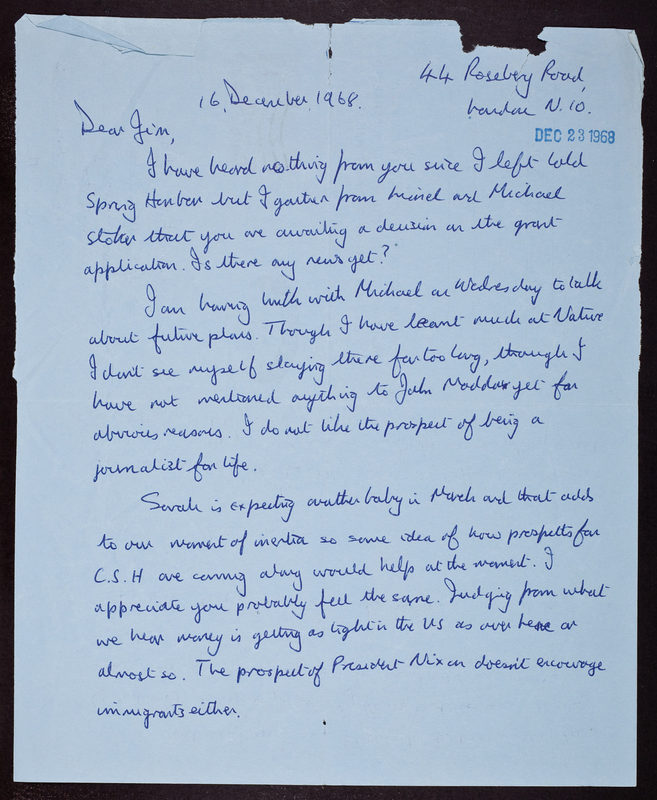 44 Rosebery Road,
16, December, 1968.
London N.10.
Dear Jim,
DEC 23 1968
I have heard nothing from you since I left Cold
Spring Harbor but I gather from Lionel and Michael
Stoker that you are awaiting a decision on the grant
application. Is there any news yet?
I am having lunch with Michael on Wednesday to talk
about future plans. Though I have learnt much at Nature
I don't see myself staying there for too long, though I
have not mentioned anything to John Maddox yet for
obvious reasons. I do not like the prospect of being a
journalist for life.
Sarah is expecting another baby in March and that adds
to our moment of inertia so some idea of how prospects for
C.S.H are coming along would help at the moment. I
appreciate you probably feel the same. Judging from what
we hear money is getting as tight in the US as over here or
almost so. The prospect of President Nixon doesn't encourage
immigrants either.